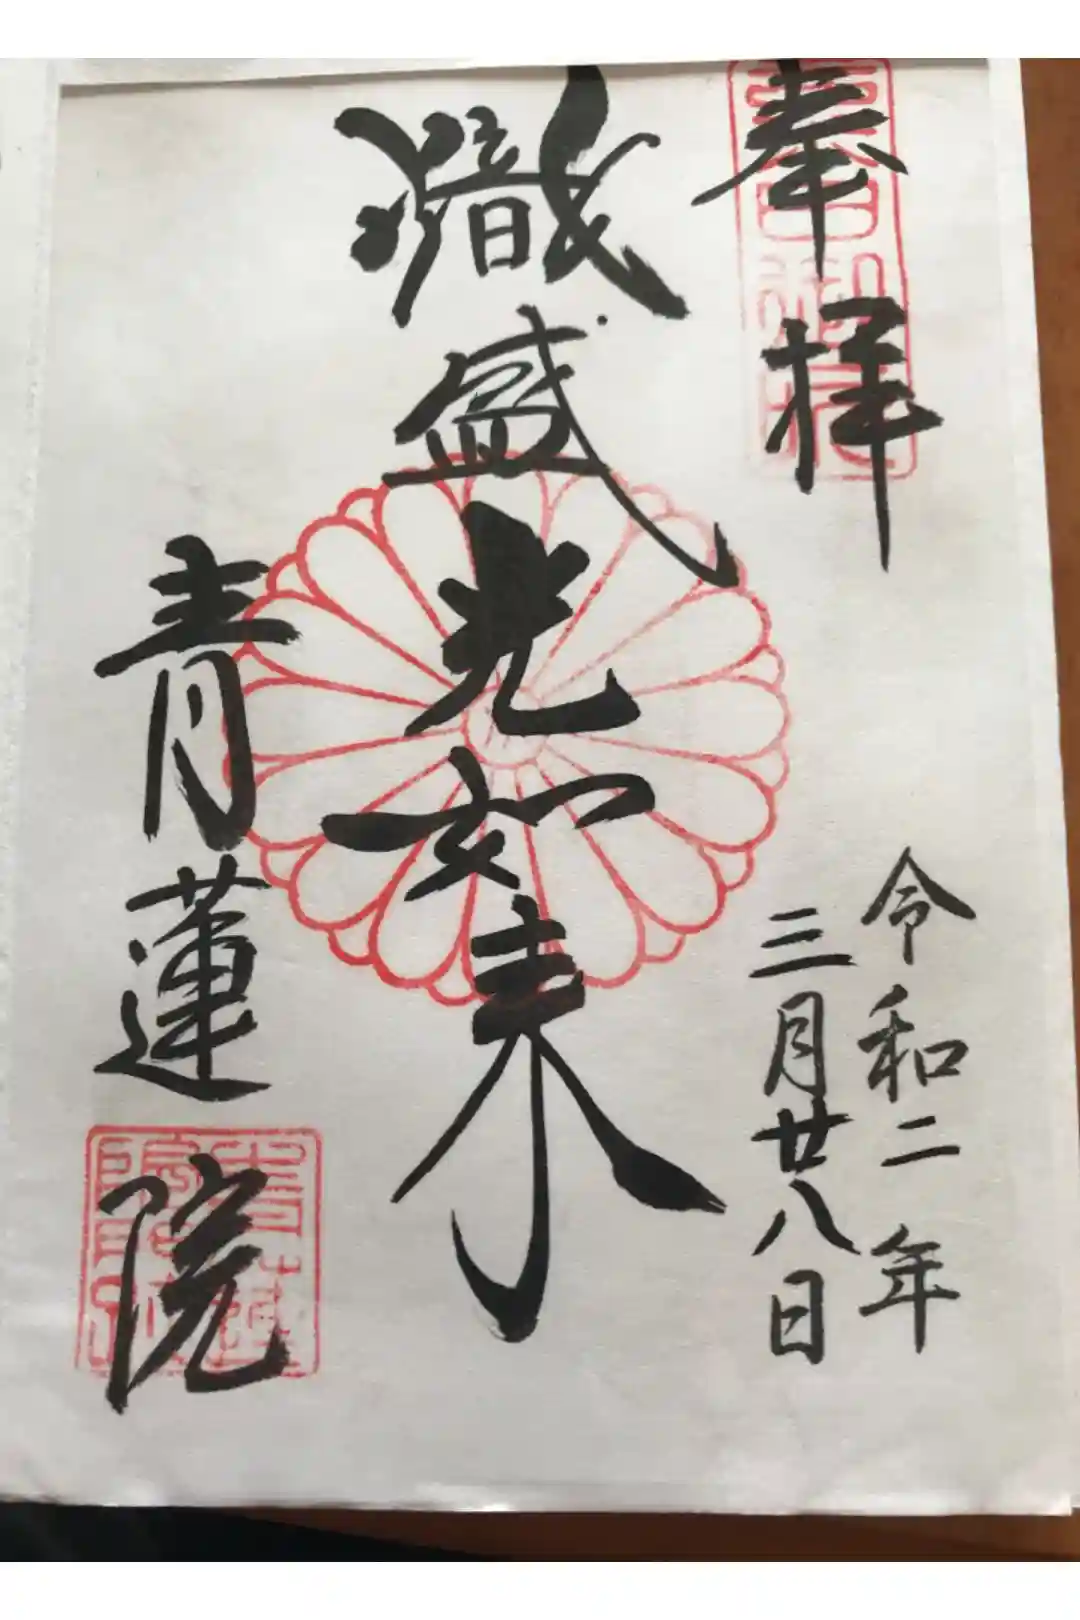 奉拝
令和二年
三月廿八日
熾盛光如来
青蓮院